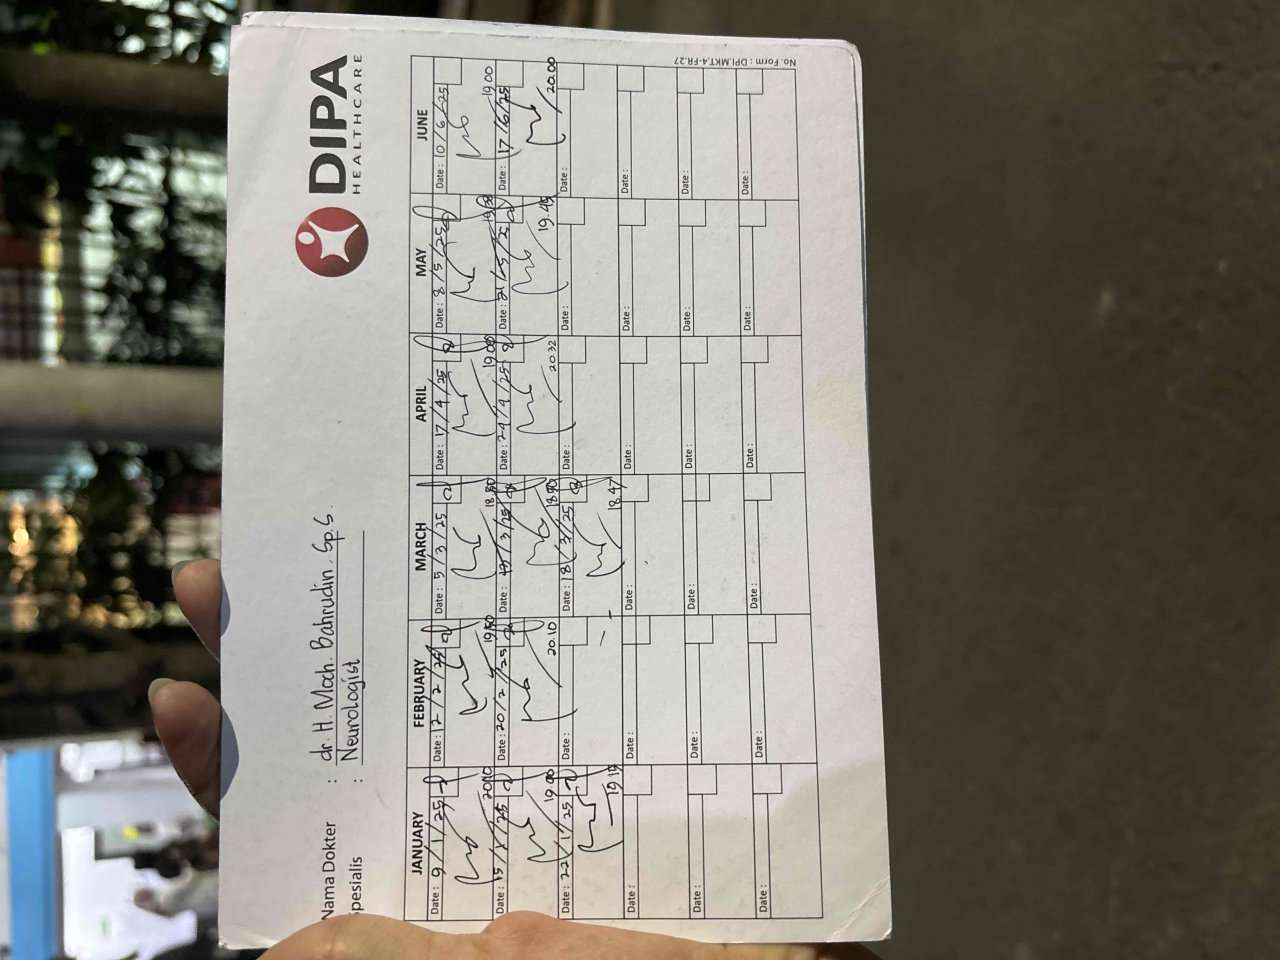 DIPA
HEALTHCARE
Nama Dokter : dr. H. Moch. Bahrudin, Sp.S.
Spesialis : Neurologist
No. Form : DPI.MKT.4-FR.27
JANUARY FEBRUARY MARCH APRIL MAY JUNE
Date : 9/1/25 Date : 2/2/25 Date : 5/3/25 Date : 17/4/25 Date : 8/5/25 Date : 10/6/25
20.10 19.50 18.30 19.00 19.00
Date : 15/1/25 Date : 20/2/25 Date : 13/3/25 Date : 24/4/25 Date : 21/5/25 Date : 17/6/25
19.00 20.10 20.32 19.45 20.00
Date : 22/1/25 Date : Date : 18/3/25 Date : Date : Date :
19.19 18.47
Date : Date : Date : Date : Date : Date :
Date : Date : Date : Date : Date : Date :
Date : Date : Date : Date : Date : Date :